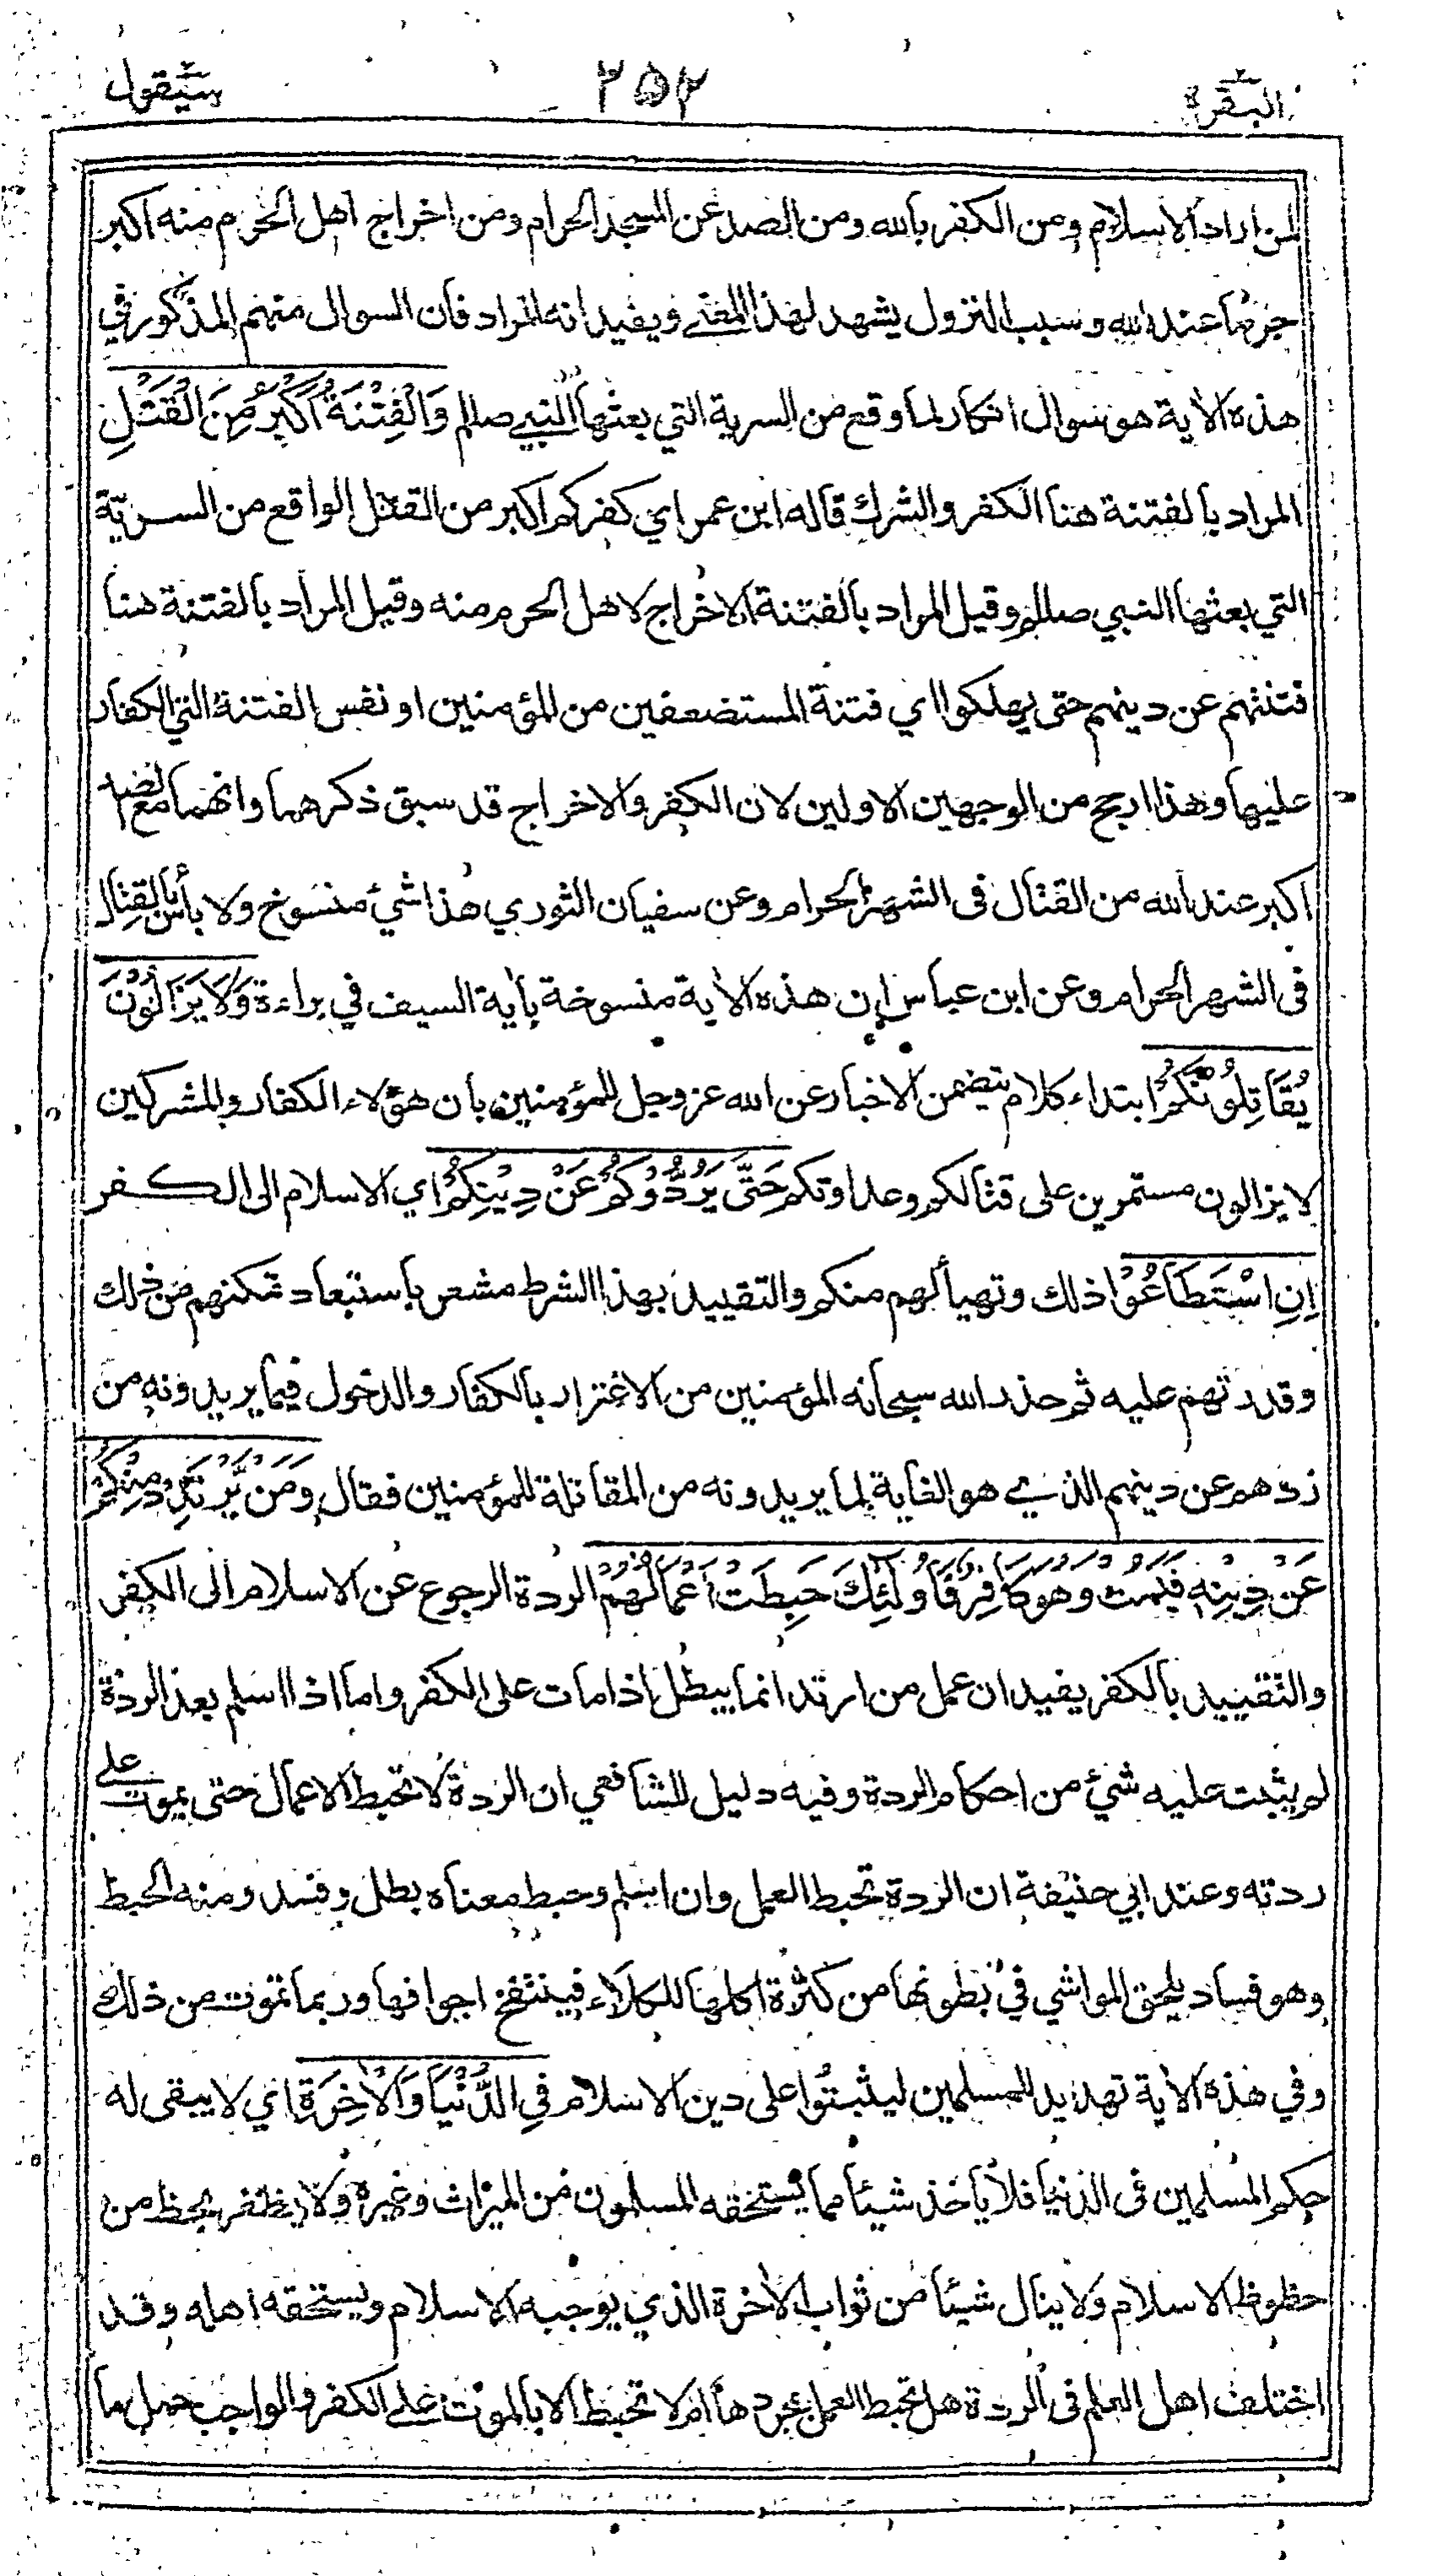 البقرة ٢٥٢ سيقول
لمن اراد الاسلام ومن الكفر بالله ومن الصد عن المسجد الحرام ومن اخراج اهل الحرم منه اكبر
جرما عند الله وسبب النزول يشهد لهذا المعنى ويفيد انه المراد فان السوال منهم المذكور في
هذه الاية هو سوال انكار لما وقع من السرية التي بعثها النبي صللم وَالْفِتْنَةُ اَكْبَرُ مِنَ الْقَتْلِ
المراد بالفتنة هنا الكفر والشرك قاله ابن عمر اي كفركم اكبر من القتل الواقع من السرية
التي بعثها النبي صللم وقيل المراد بالفتنة الاخراج لاهل الحرم منه وقيل المراد بالفتنة هنا
فتنتهم عن دينهم حتى يهلكوا اي فتنة المستضعفين من المؤمنين او نفس الفتنة التي الكفار
عليها وهذا ارجح من الوجهين الاولين لان الكفر والاخراج قد سبق ذكرهما وانهما مع الصد
اكبر عند الله من القتال فى الشهر الحرام وعن سفيان الثوري هذا شيء منسوخ ولا باس بالقتال
فى الشهر الحرام وعن ابن عباس ان هذه الاية منسوخة باية السيف في براءة وَلَا يَزَالُوْنَ
يُقَاتِلُوْنَكُمْ ابتداء كلام يتضمن الاخبار عن الله عز وجل للمؤمنين بان هؤلاء الكفار والمشركين
لا يزالون مستمرين على قتالكم وعداوتكم حَتّٰى يَرُدُّوْكُمْ عَنْ دِيْنِكُمْ اي الاسلام الى الكفر
اِنِ اسْتَطَاعُوْا ذلك وتهيأ لهم منكم والتقييد بهذا الشرط مشعر باستبعاد تمكنهم من ذلك
وقدرتهم عليه ثم حذر الله سبحانه المؤمنين من الاغترار بالكفار والدخول فيما يريدونه من
ردهم عن دينهم الذي هو الغاية لما يريدونه من المقاتلة للمؤمنين فقال وَمَنْ يَّرْتَدِدْ مِنْكُمْ
عَنْ دِيْنِهٖ فَيَمُتْ وَهُوَ كَافِرٌ فَاُولٰٓئِكَ حَبِطَتْ اَعْمَالُهُمْ الردة الرجوع عن الاسلام الى الكفر
والتقييد بالكفر يفيد ان عمل من ارتد انما يبطل اذا مات على الكفر واما اذا اسلم بعد الردة
لم يثبت عليه شيء من احكام الردة وفيه دليل للشافعي ان الردة لا تحبط الاعمال حتى يموت على
ردته وعند ابي حنيفة ان الردة تحبط العمل وان اسلم وحبط معناه بطل وفسد ومنه الحبط
وهو فساد يلحق المواشي في بطونها من كثرة اكلها للكلاء فينتفخ اجوافها وربما تموت من ذلك
وفي هذه الاية تهديد للمسلمين ليثبتوا على دين الاسلام فِى الدُّنْيَا وَالْاٰخِرَةِ اي لا يبقى له
حكم المسلمين فى الدنيا فلا ياخذ شيئا مما يستحقه المسلمون من الميراث وغيره ولا يظفر بحظ من
حظوظ الاسلام ولا ينال شيئا من ثواب الاخرة الذي يوجبه الاسلام ويستحقه اهله وقد
اختلف اهل العلم فى الردة هل تحبط العمل بمجردها ام لا تحبط الا بالموت على الكفر والواجب حمل ما